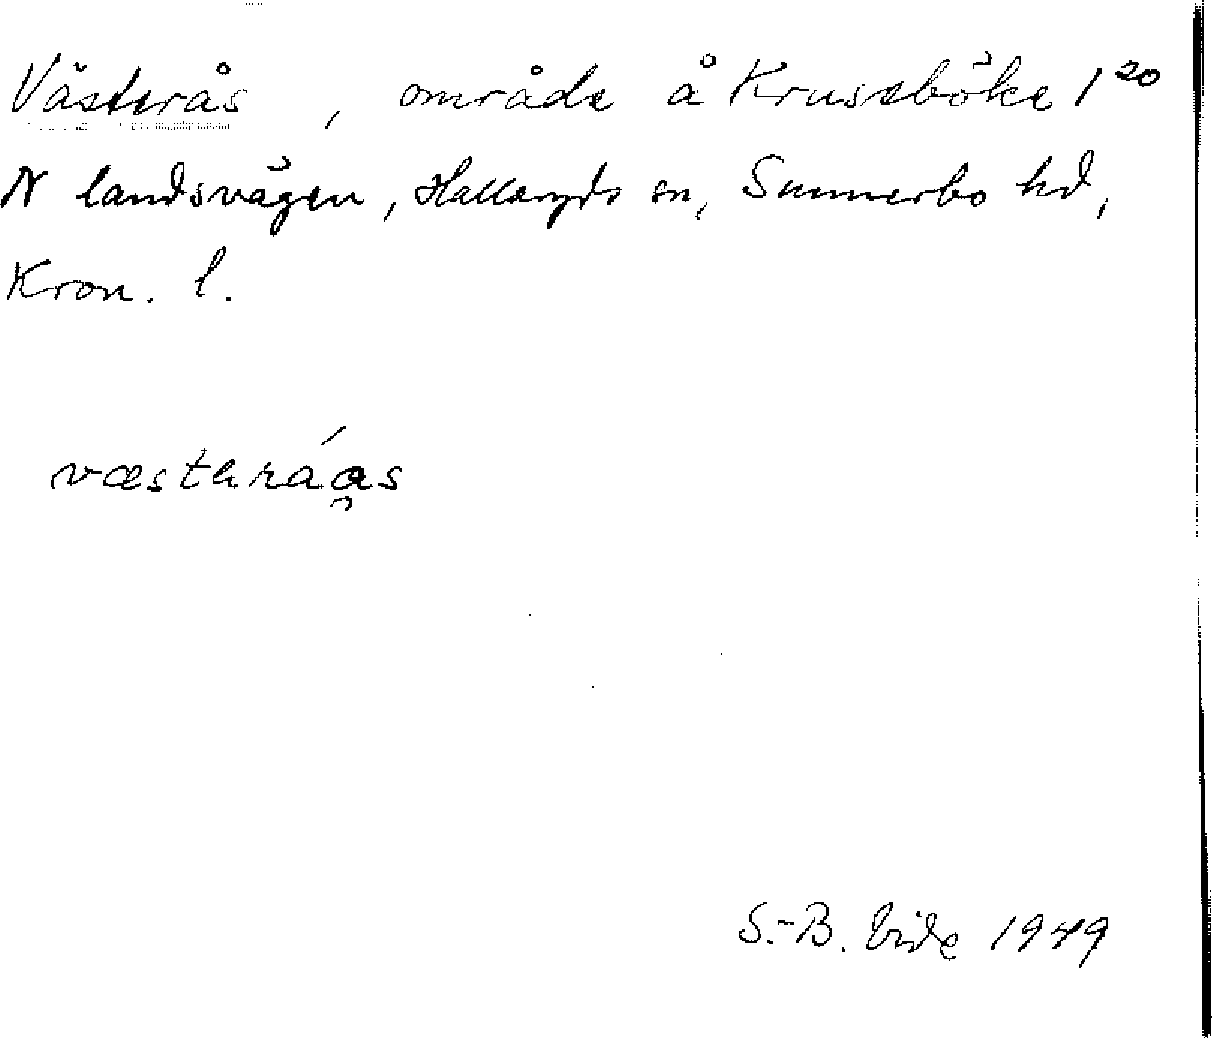 Västerås, område å Krusseböke 1²⁰
N landsvägen, Hallaryds sn, Sunnerbo hd,
Kron. l.
væsteráas
S.-B. Vide 1949